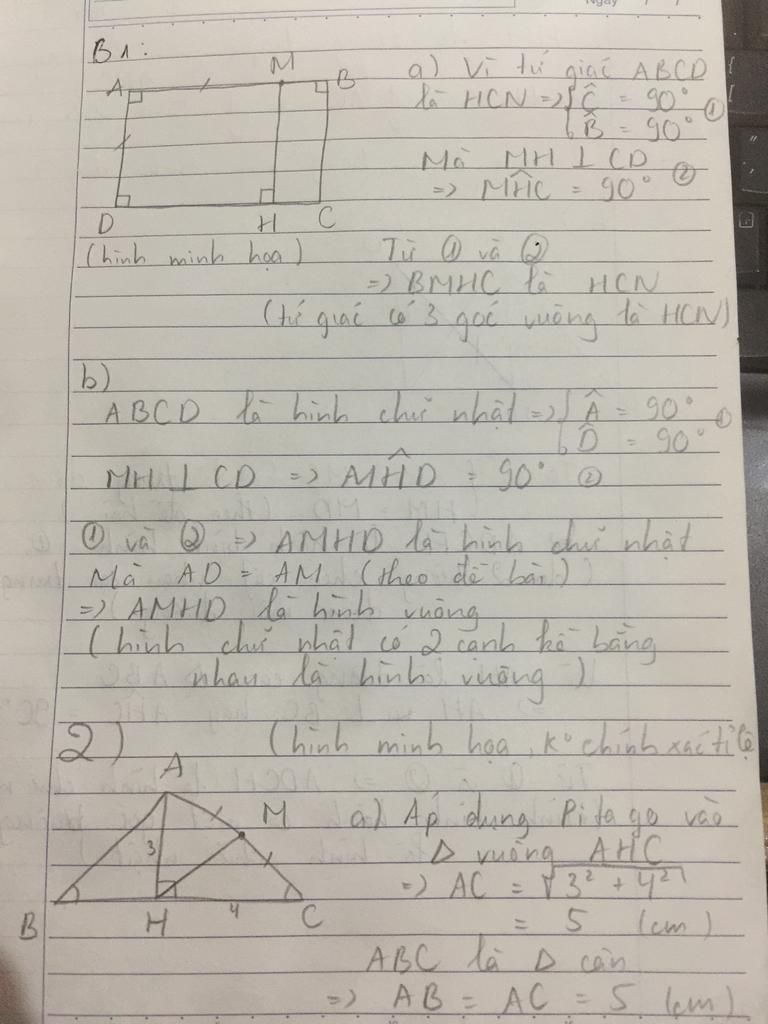 Ngày
B1:
A
M
B
D
H
C
(hình minh họa)
a) Vì tứ giác ABCD
là HCN => { Ĉ = 90° ①
B̂ = 90°
Mà MH ⊥ CD
=> MĤC = 90° ②
Từ ① và ②
=> BMHC là HCN
(tứ giác có 3 góc vuông là HCN)
b)
ABCD là hình chữ nhật => { Â = 90° ①
D̂ = 90°
MH ⊥ CD => AMĤD = 90° ②
① và ② => AMHD là hình chữ nhật
Mà AD = AM (theo đề bài)
=> AMHD là hình vuông
(hình chữ nhật có 2 cạnh kề bằng
nhau là hình vuông)
2)
(hình minh họa, k° chính xác tỉ lệ
A
M
3
B
H
4
C
a) Áp dụng Pitago vào
Δ vuông AHC
=> AC = √3² + 4²
= 5 (cm)
ABC là Δ cân
=> AB = AC = 5 (cm)